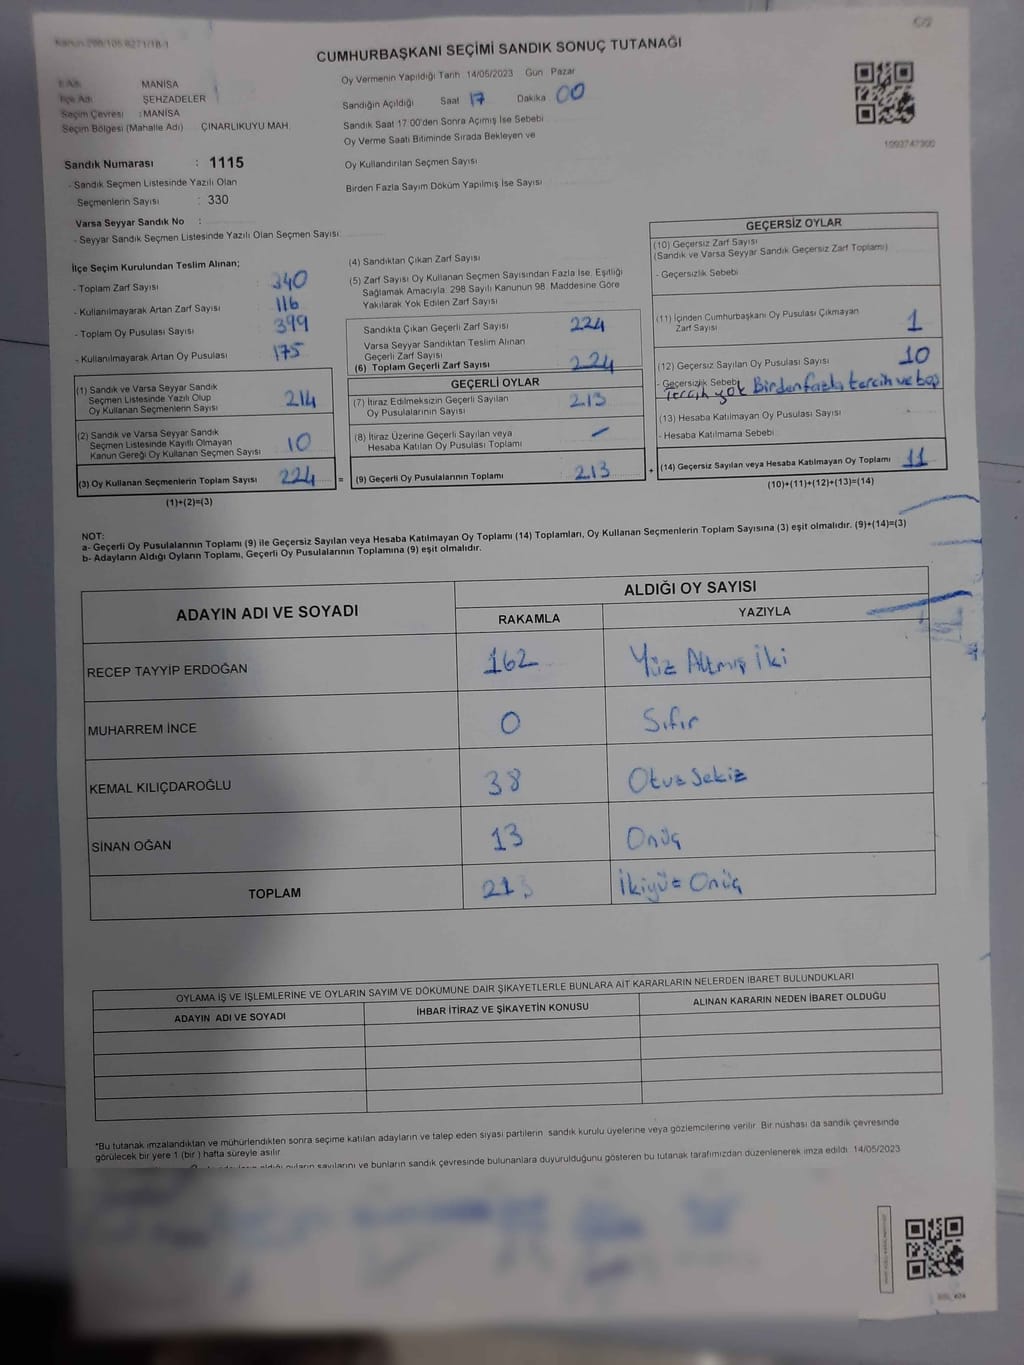 Kanun:298/105 6271/18-1
CUMHURBAŞKANI SEÇİMİ SANDIK SONUÇ TUTANAĞI
İl Adı MANİSA
İlçe Adı ŞEHZADELER
Seçim Çevresi : MANİSA
Seçim Bölgesi (Mahalle Adı) ÇINARLIKUYU MAH.
Oy Vermenin Yapıldığı Tarih 14/05/2023 Gün Pazar
Sandığın Açıldığı Saat 17 Dakika 00
Sandık Saat 17:00'den Sonra Açımış İse Sebebi
Oy Verme Saati Bitiminde Sırada Bekleyen ve
Oy Kullandırılan Seçmen Sayısı
Birden Fazla Sayım Döküm Yapılmış İse Sayısı
Sandık Numarası : 1115
- Sandık Seçmen Listesinde Yazılı Olan
Seçmenlerin Sayısı : 330
Varsa Seyyar Sandık No :
- Seyyar Sandık Seçmen Listesinde Yazılı Olan Seçmen Sayısı:
İlçe Seçim Kurulundan Teslim Alınan;
- Toplam Zarf Sayısı : 340
- Kullanılmayarak Artan Zarf Sayısı : 116
- Toplam Oy Pusulası Sayısı : 399
- Kullanılmayarak Artan Oy Pusulası : 175
(1) Sandık ve Varsa Seyyar Sandık
Seçmen Listesinde Yazılı Olup
Oy Kullanan Seçmenlerin Sayısı 214
(2) Sandık ve Varsa Seyyar Sandık
Seçmen Listesinde Kayıtlı Olmayan
Kanun Gereği Oy Kullanan Seçmen Sayısı 10
(3) Oy Kullanan Seçmenlerin Toplam Sayısı 224 =
(1)+(2)=(3)
(4) Sandıktan Çıkan Zarf Sayısı
(5) Zarf Sayısı Oy Kullanan Seçmen Sayısından Fazla İse, Eşitliği
Sağlamak Amacıyla; 298 Sayılı Kanunun 98. Maddesine Göre
Yakılarak Yok Edilen Zarf Sayısı
Sandıkta Çıkan Geçerli Zarf Sayısı 224
Varsa Seyyar Sandıktan Teslim Alınan
Geçerli Zarf Sayısı
(6) Toplam Geçerli Zarf Sayısı 224
GEÇERLİ OYLAR
(7) İtiraz Edilmeksizin Geçerli Sayılan
Oy Pusulalarının Sayısı 213
(8) İtiraz Üzerine Geçerli Sayılan veya
Hesaba Katılan Oy Pusulası Toplamı -
(9) Geçerli Oy Pusulalarının Toplamı 213 +
GEÇERSİZ OYLAR
(10) Geçersiz Zarf Sayısı
(Sandık ve Varsa Seyyar Sandık Geçersiz Zarf Toplamı)
- Geçersizlik Sebebi
(11) İçinden Cumhurbaşkanı Oy Pusulası Çıkmayan
Zarf Sayısı 1
(12) Geçersiz Sayılan Oy Pusulası Sayısı 10
- Geçersizlik Sebebi
Tercih yok Birden fazla tercih ve boş
(13) Hesaba Katılmayan Oy Pusulası Sayısı
- Hesaba Katılmama Sebebi
(14) Geçersiz Sayılan veya Hesaba Katılmayan Oy Toplamı 11
(10)+(11)+(12)+(13)=(14)
NOT:
a- Geçerli Oy Pusulalarının Toplamı (9) ile Geçersiz Sayılan veya Hesaba Katılmayan Oy Toplamı (14) Toplamları, Oy Kullanan Seçmenlerin Toplam Sayısına (3) eşit olmalıdır. (9)+(14)=(3)
b- Adayların Aldığı Oyların Toplamı, Geçerli Oy Pusulalarının Toplamına (9) eşit olmalıdır.
ADAYIN ADI VE SOYADI
ALDIĞI OY SAYISI
RAKAMLA YAZIYLA
RECEP TAYYİP ERDOĞAN 162 Yüz Altmış İki
MUHARREM İNCE 0 Sıfır
KEMAL KILIÇDAROĞLU 38 Otuz Sekiz
SİNAN OĞAN 13 Onüç
TOPLAM 213 İkiyüz Onüç
OYLAMA İŞ VE İŞLEMLERİNE VE OYLARIN SAYIM VE DÖKÜMÜNE DAİR ŞİKAYETLERLE BUNLARA AİT KARARLARIN NELERDEN İBARET BULUNDUKLARI
ADAYIN ADI VE SOYADI İHBAR İTİRAZ VE ŞİKAYETİN KONUSU ALINAN KARARIN NEDEN İBARET OLDUĞU
*Bu tutanak imzalandıktan ve mühürlendikten sonra seçime katılan adayların ve talep eden siyasi partilerin sandık kurulu üyelerine veya gözlemcilerine verilir. Bir nüshası da sandık çevresinde
görülecek bir yere 1 (bir) hafta süreyle asılır
sayılarını ve bunların sandık çevresinde bulunanlara duyurulduğunu gösteren bu tutanak tarafımızdan düzenlenerek imza edildi. 14/05/2023